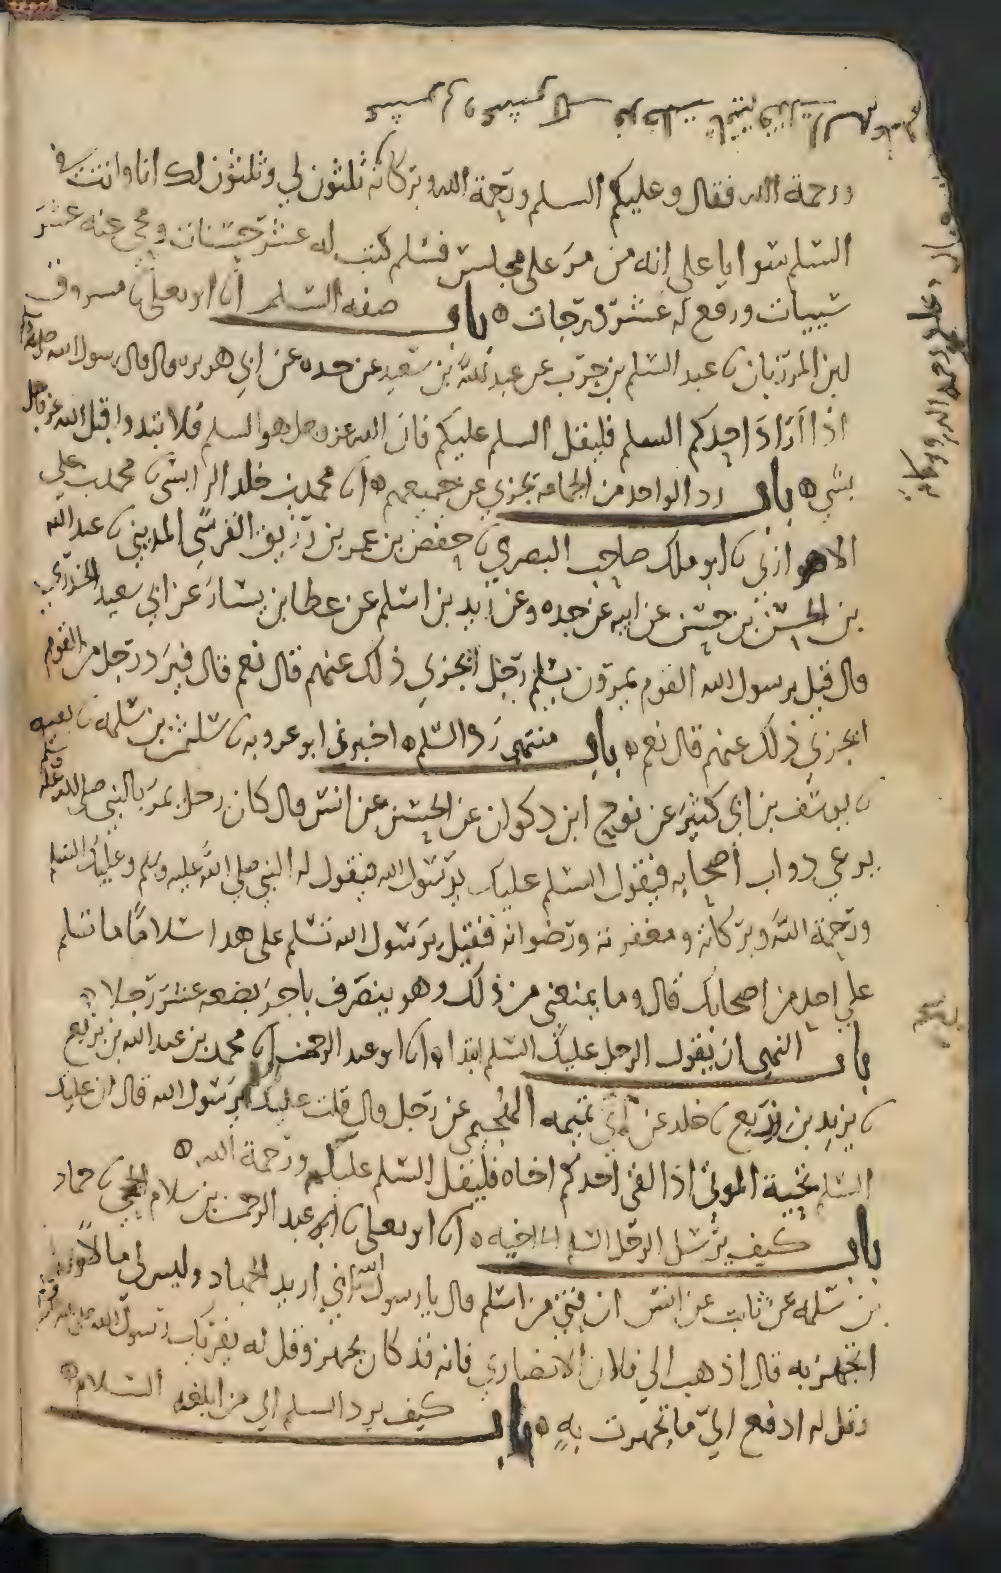 ورحمة الله فقال وعليكم السلم ورحمة الله وبركاته ثلثون لي وثلثون لك انا وانت في
السلم سوا يا علي انه من مر على مجلس فسلم كتب له عشر حسنات ومحي عنه عشر
سييات ورفع له عشر درجات باب صفه السلم ابو يعلى مسروق
بن المرزبان عبد السلم بن حرب عن عبد الله بن سعيد عن جده عن ابي هريره قال قال رسول الله صلى الله
اذا اراد احدكم السلم فليقل السلم عليكم فان الله عز وجل هو السلم فلا تبدوا قبل الله عز وجل
بشي باب رد الواحد من الجماعه يجزي عن جميعهم محمد بن خلد الراسبي محمد بن علي
الاهوازي ابو ملك صاحب البصري حفص بن عمر بن رزيق القرشي المديني عبد الله
بن الحسن بن حسن عن ابيه عن جده وعن زيد بن اسلم عن عطا بن يسار عن ابي سعيد الخدري
قال قيل يرسول الله القوم يمرون يسلم رجل ايجزي ذلك عنهم قال نعم قال فيرد رجل من القوم
ايجزي ذلك عنهم قال نعم باب منتهى رد السلم اخبرني ابو عروبه سلمة بقيه
يوسف بن ابي كثير عن نوح ابن ذكوان عن الحسن عن انس قال كان رجل يمر بالنبي صلى الله عليه وسلم
يرعى دواب اصحابه فيقول السلم عليك يرسول الله فيقول له النبي صلى الله عليه وسلم وعليك السلم
ورحمة الله وبركاته ومغفرته ورضوانه فقيل يرسول الله تسلم على هذا سلاما ما تسلم
على احد من اصحابك قال وما يمنعني من ذلك وهو ينصرف باجر بضعه عشر رجلا
باب النهي ان يقول الرجل عليك السلم ابتدا ابو عبد الرحمن محمد بن عبد الله بن بزيع
يزيد بن زريع خلد عن ابي تميمه الهجيمي عن رجل قال قلت عليك يرسول الله قال ان عليك
السلم تحية الموتى اذا لقي احدكم اخاه فليقل السلم عليكم ورحمة الله
باب كيف يرسل الرجل السلم الى اخيه ابو يعلى عبد الرحمن بن سلام حماد
بن سلمه عن ثابت عن انس ان فتى من اسلم قال يا رسول الله اني اريد الجهاد وليس لي مال
اتجهز به قال اذهب الى فلان الانصاري فانه قد كان تجهز وقل له يقريك رسول الله
وقل له ادفع الي ما تجهزت به باب كيف يرد السلم الى من ابلغه السلام